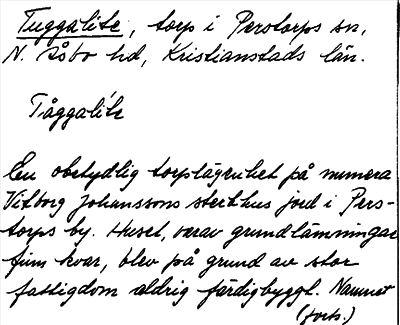 Tuggalite, torp i Perstorps sn,
N. Åsbo hd, Kristianstads län.
Tåggalite
En obetydlig torplägenhet på numera
Vitborg Johanssons sterbhus jord i Pers-
torps by. Huset, varav grundlämningar
finns kvar, blev på grund av stor
fattigdom aldrig färdigbyggt. Namnet
(forts.)